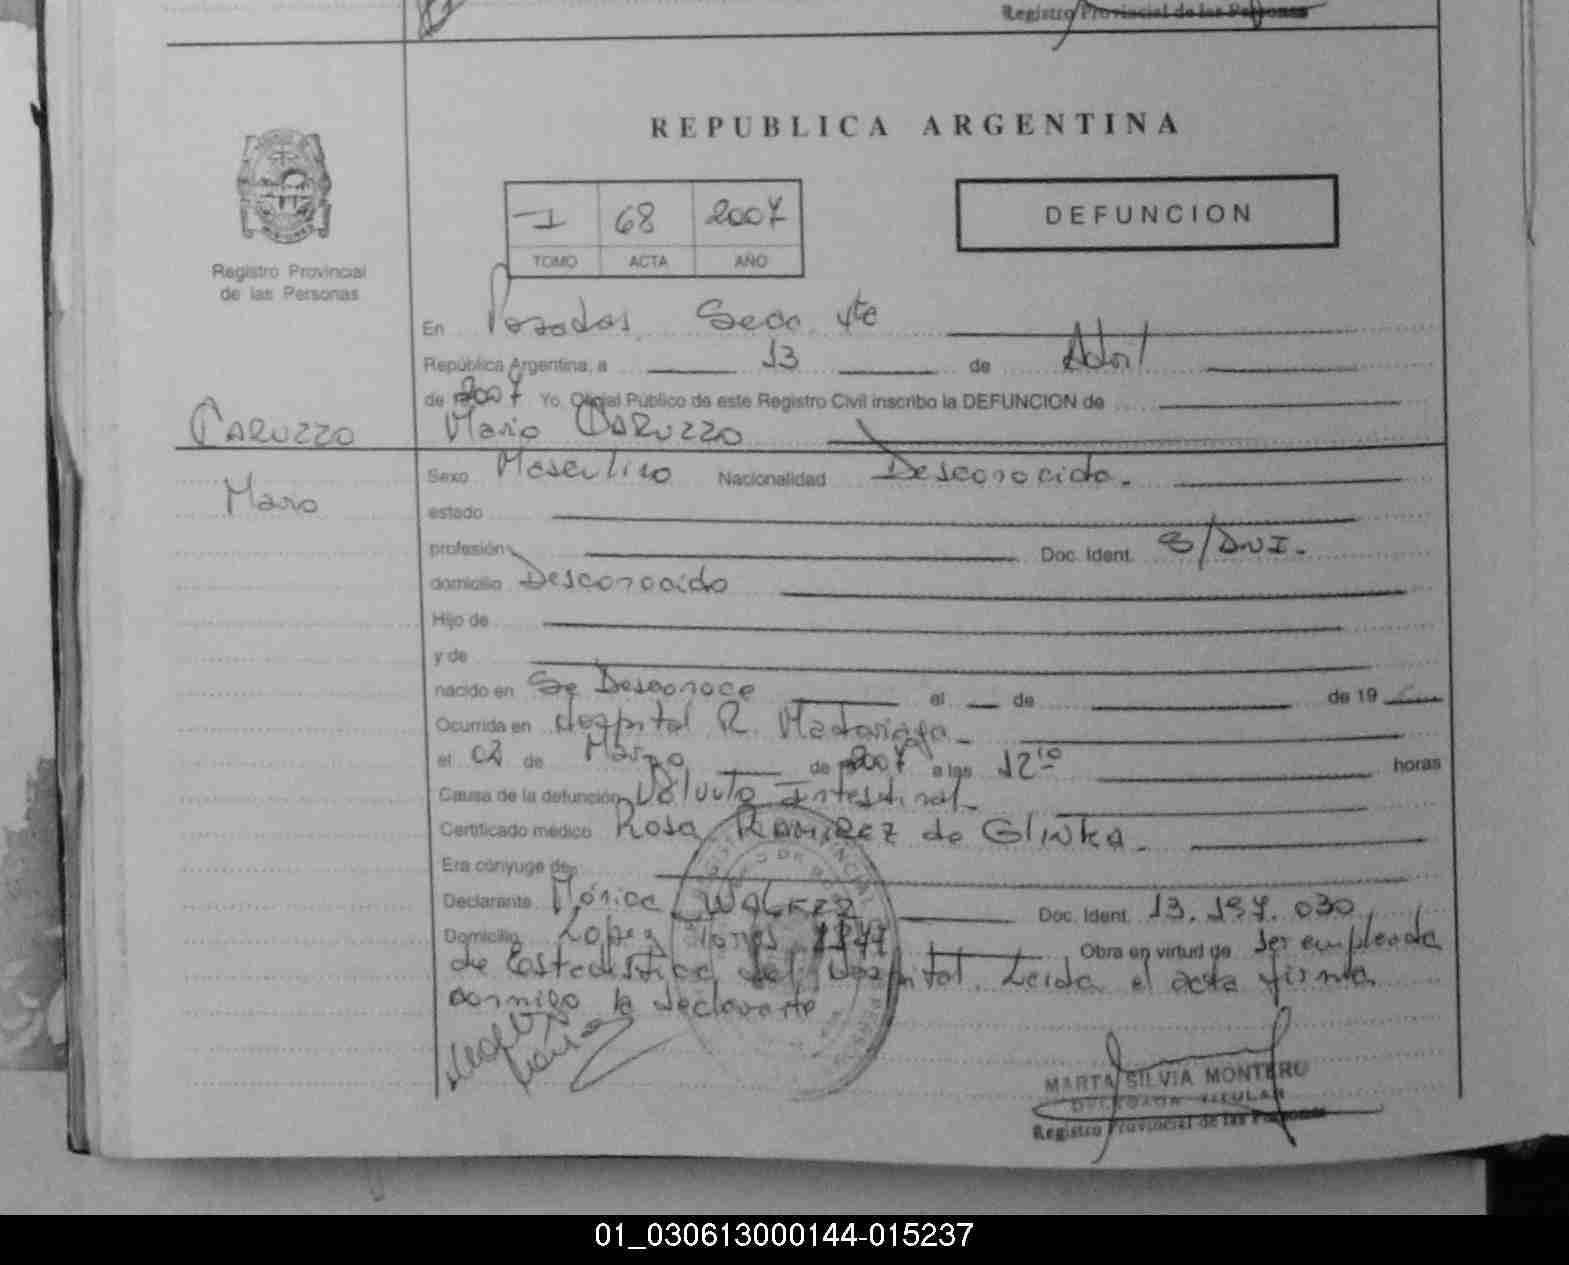 Registro Provincial de las Personas
REPUBLICA ARGENTINA
I 68 2007
TOMO ACTA AÑO
DEFUNCION
Registro Provincial
de las Personas
En Posadas Secc. 4ta
República Argentina, a 13 de Abril
de 2007 Yo. Oficial Público de este Registro Civil inscribo la DEFUNCION de
CARUZZO
Mario CARUZZO
Mario
Sexo Masculino Nacionalidad Desconocida.
estado
profesión Doc. Ident. S/DNI.
domicilio Desconocido
Hijo de
y de
nacido en Se Desconoce el de de 19
Ocurrida en Hospital R. Madariaga
el 02 de Marzo de 2007 a las 12 10 horas
Causa de la defunción Vólvulo Intestinal
Certificado médico Rosa RAMIREZ de GLINKA
Era cónyuge de
Declarante Mónica Doc. Ident. 13.197.030
Domicilio Lopez Torres Obra en virtud de ser empleada
de Estadística del Hospital. Leida el acta firma
conmigo la declarante
MARTA SILVIA MONTERO
DELEGADA TITULAR
Registro Provincial de las Personas
01_030613000144-015237